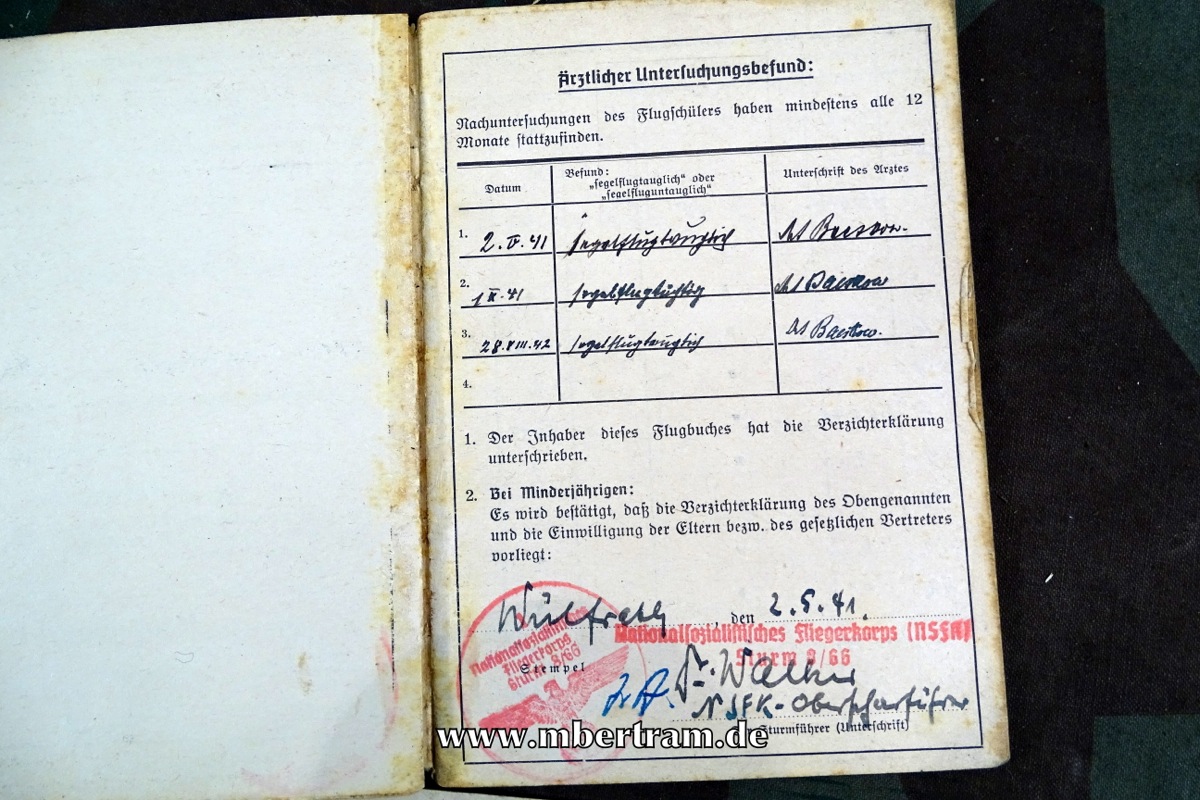 Ärztlicher Untersuchungsbefund:
Nachuntersuchungen des Flugschülers haben mindestens alle 12
Monate stattzufinden.
Datum
Befund:
„segelflugtauglich“ oder
„segelfluguntauglich“
Unterschrift des Arztes
1. 2.V.41 segelflugtauglich
2. segelflugtüchtig
3. 28.VIII.42 segelflugtauglich
4.
1. Der Inhaber dieses Flugbuches hat die Verzichterklärung
unterschrieben.
2. Bei Minderjährigen:
Es wird bestätigt, daß die Verzichterklärung des Obengenannten
und die Einwilligung der Eltern bezw. des gesetzlichen Vertreters
vorliegt:
Wülfrath, den 2.5.41.
Nationalsozialistisches Fliegerkorps (NSFK)
Sturm 9/66
Nationalsozialistisches
Fliegerkorps
Sturm 9/66
Stempel
NSFK-Oberscharführer
Sturmführer (Unterschrift)
www.mbertram.de